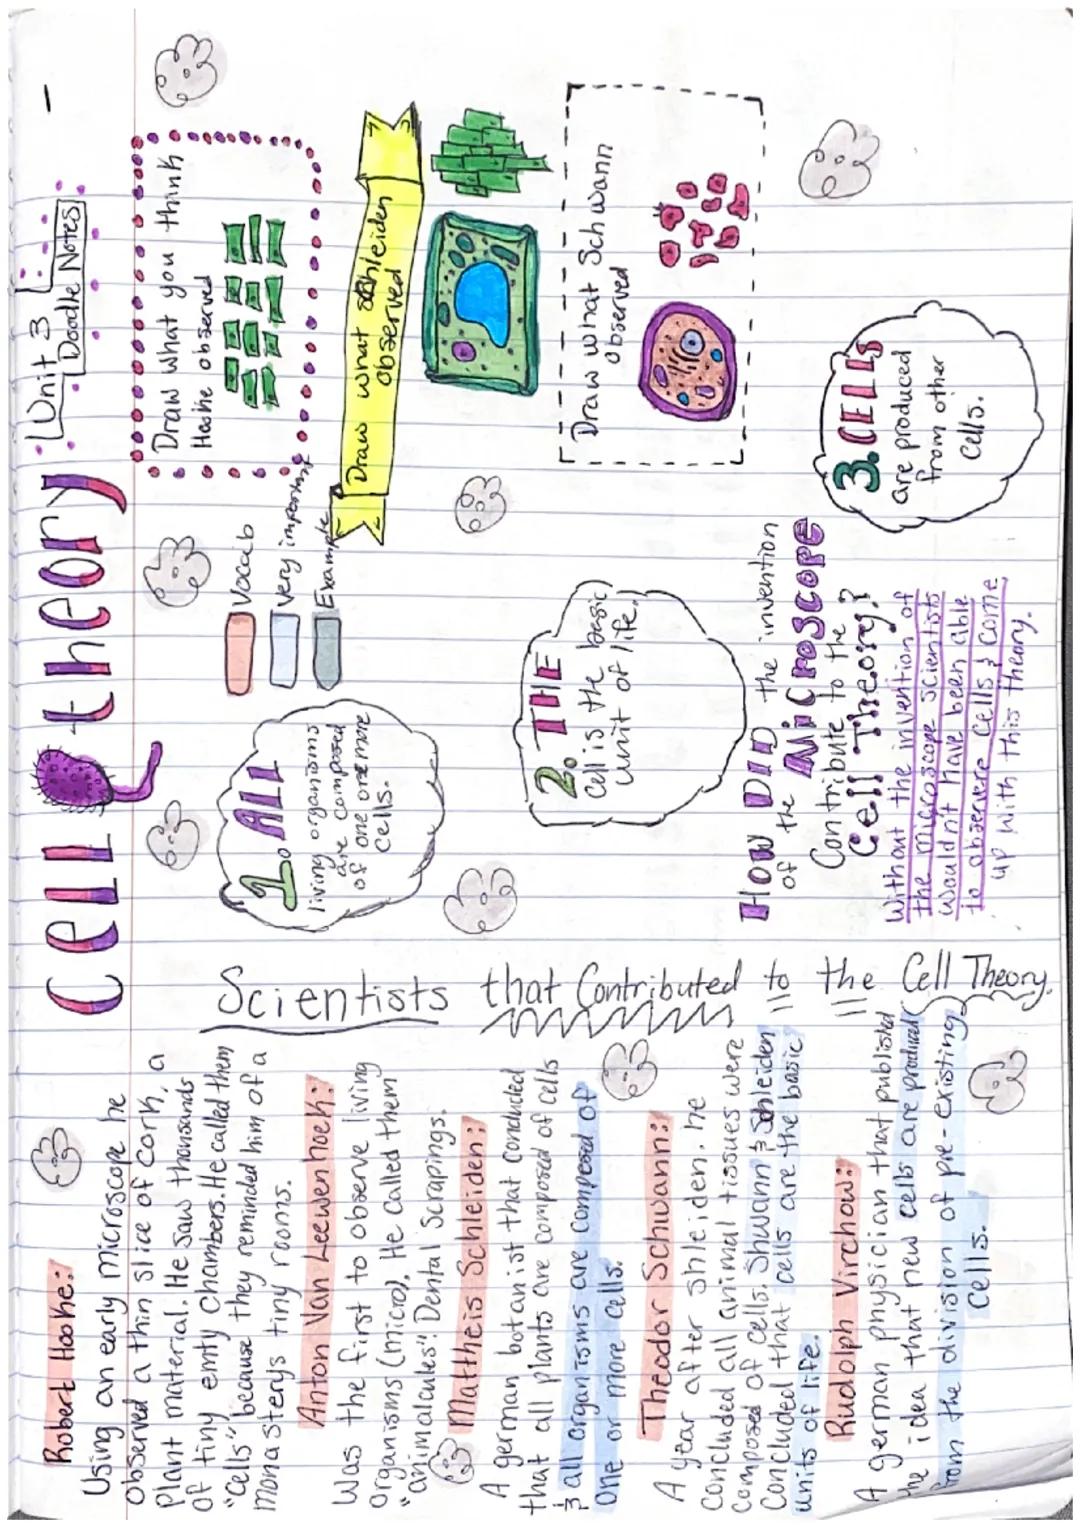 Cell theory
Unit 3
Doodle Notes
Robert Hooke:
Using an early microscope he
observed a thin slice of Cork, a
Plant material. He saw thousands
of tiny emty chambers. He called them
"Cells" because they reminded him of a
monasterys tiny rooms.
Anton Van Leewenhoek:
Was the first to observe living
organisms (micro). He called them
"animalcules". Dental Scrapings.
Matheis Schleiden:
A german botanist that concluded
that all plants are composed of cells
& all organisms are composed of
one or more cells.
Theodor Schwann:
A year after shleiden, he
concluded all animal tissues were
composed of cells. Shwann & Schleiden
concluded that cells are the basic
units of life.
Rudolph Virchow:
A german physician that published
the idea that new cells are produced
from the division of pre-existing
cells.
Scientists that Contributed to the Cell Theory.
1. ALL
living organisms
are composed
of one or more
cells.
Vocab
Very important
Example
2. THE
Cell is the basic
unit of life.
How DID the invention
of the MiCROSCOPE
Contribute to the
Cell Theory?
Without the invention of
the microscope scientists
wouldn't have been able
to observere cells & come
up with this theory.
3. CELLS
are produced
from other
cells.
Draw what you think
Hooke observed
Draw what Schleiden
observed
Draw what Schwann
observed